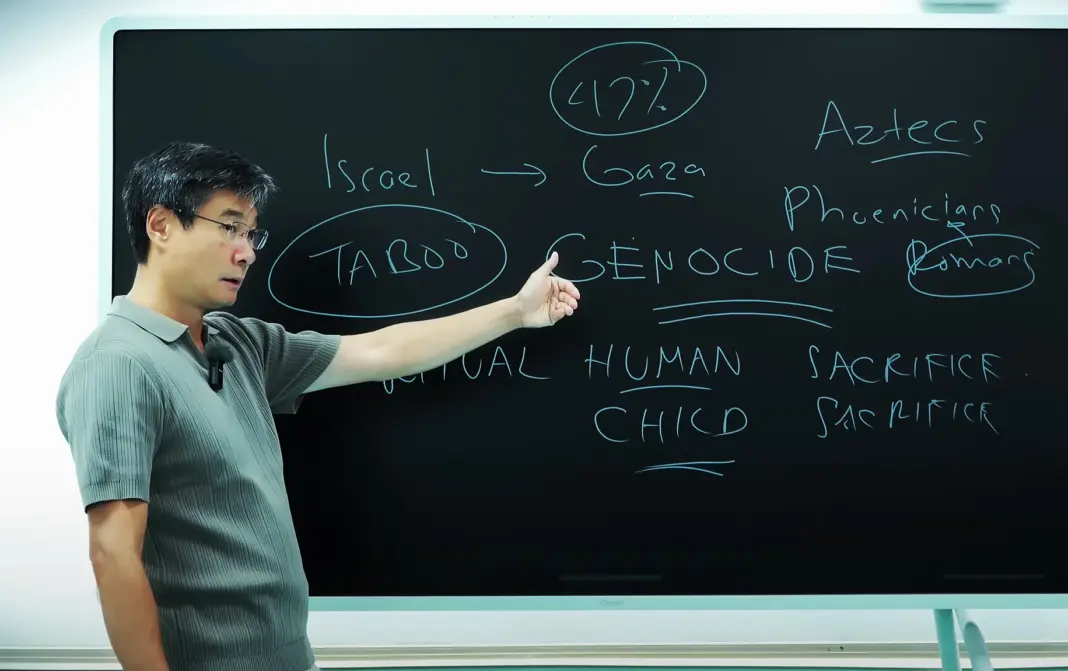 47%
Israel → Gaza
Aztecs
Phoenicians
TABOO GENOCIDE Romans
HUMAN SACRIFICE
CHILD SACRIFICE